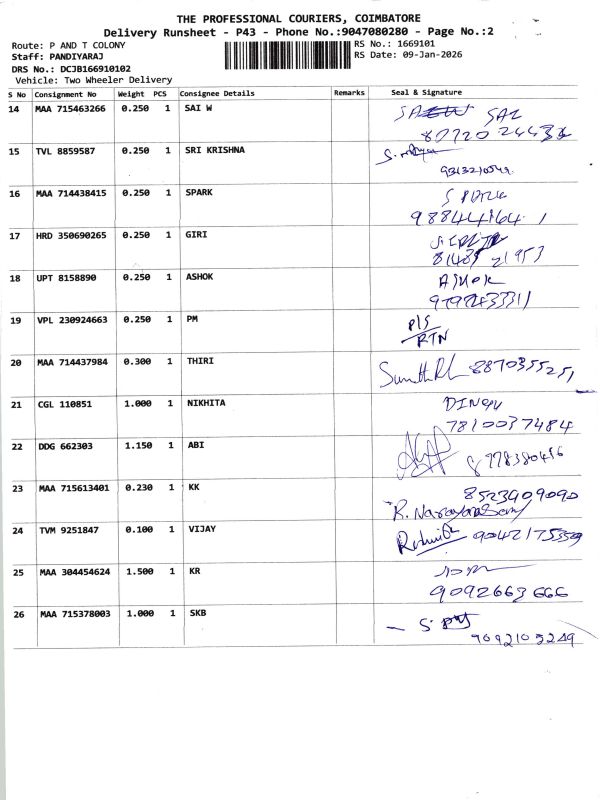 THE PROFESSIONAL COURIERS, COIMBATORE
Delivery Runsheet - P43 - Phone No.:9047080280 - Page No.:2
Route: P AND T COLONY
RS No.: 1669101
Staff: PANDIYARAJ
RS Date: 09-Jan-2026
DRS No.: DCJB166910102
Vehicle: Two Wheeler Delivery
S No Consignment No Weight PCS Consignee Details Remarks Seal & Signature
14 MAA 715463266 0.250 1 SAI W
15 TVL 8859587 0.250 1 SRI KRISHNA
16 MAA 714438415 0.250 1 SPARK
988444164 1
17 HRD 350690265 0.250 1 GIRI
18 UPT 8158890 0.250 1 ASHOK ASHOK
19 VPL 230924663 0.250 1 PM P/S
RTN
20 MAA 714437984 0.300 1 THIRI 8870355251
21 CGL 110851 1.000 1 NIKHITA
7810037484
22 DDG 662303 1.150 1 ABI 8778380416
23 MAA 715613401 0.230 1 KK 8523909090
R. Narayanasamy
24 TVM 9251847 0.100 1 VIJAY
25 MAA 304454624 1.500 1 KR
9092663666
26 MAA 715378003 1.000 1 SKB
9092105249